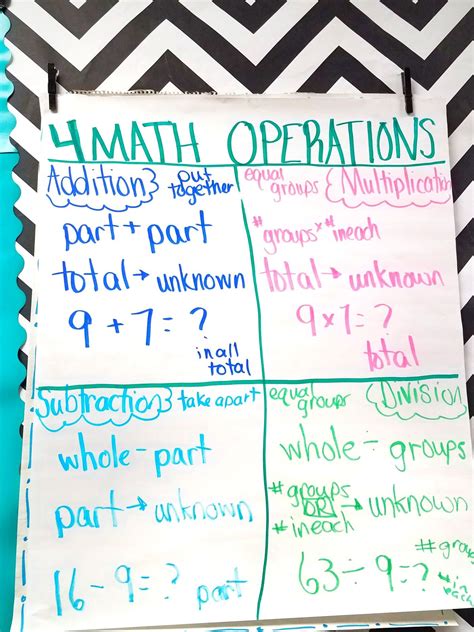 4 MATH OPERATIONS
Addition
put
together
part + part
total → unknown
9 + 7 = ?
in all
total
equal
groups
Multiplication
#groups × #in each
total → unknown
9 × 7 = ?
total
Subtraction
take apart
whole - part
part → unknown
16 - 9 = ?
part
equal
groups
Division
whole ÷ groups
#groups
OR
#in each
→ unknown
63 ÷ 9 = ?
#group
#in
each